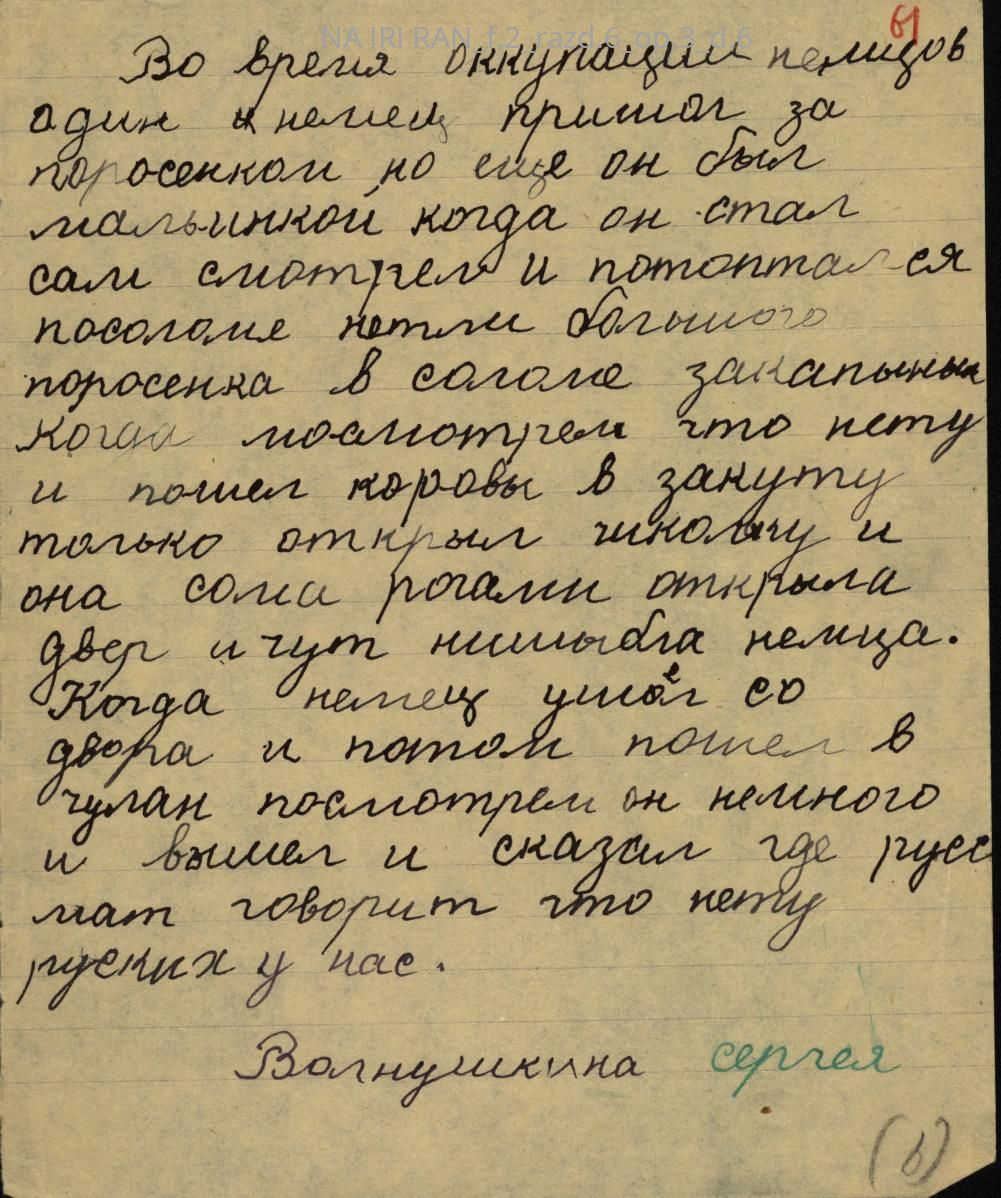 NA IRI RAN_f.2_razd.6_op.3_d.6
61
Во время оккупации немцов
один немец пришол за
поросенком но еще он был
мальинкой когда он стал
сам смотрел и потоптался
посоломе нетли большого
поросенка в соломе закапыных
Когда посмотрел что нету
и пошел коровы в закуту
только открыл
она сома рогами открыла
двер и чут немца.
Когда немец ушол со
двора и потом пошел в
чулан посмотрел он немного
и вышел и сказал где русс
мат говорит что нету
руских у нас.
Волнушкина сергея
(6)